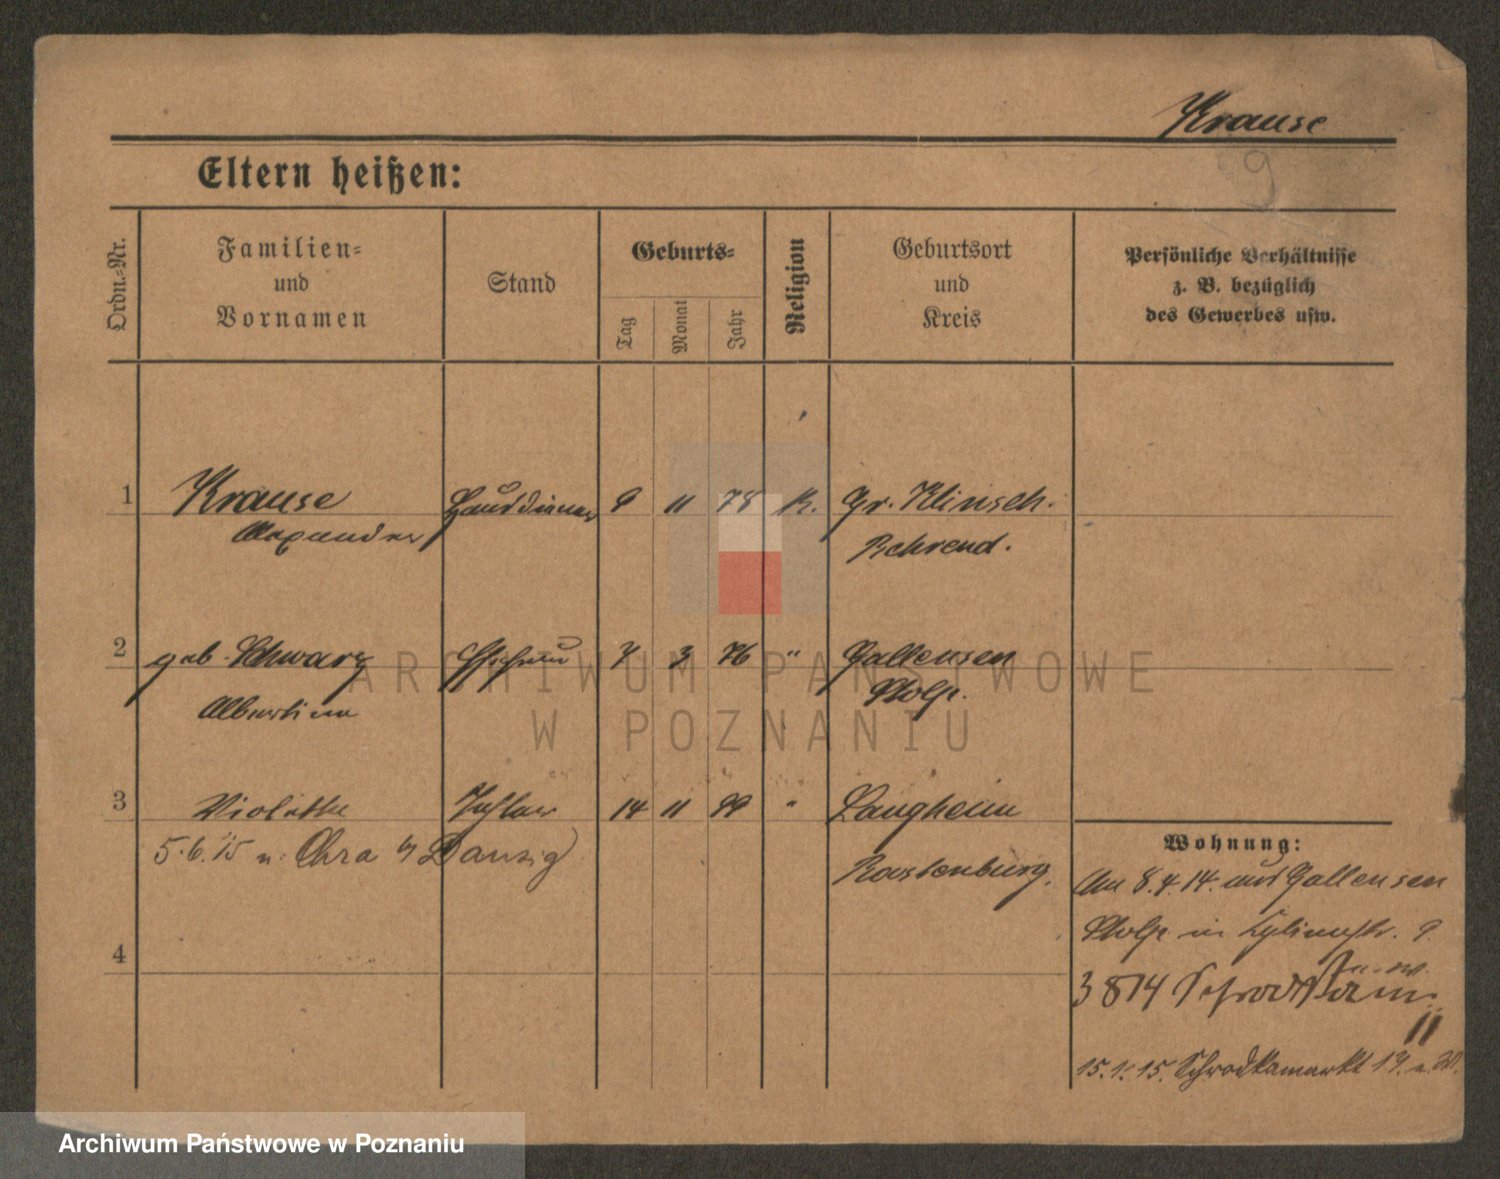 Krause
9
Eltern heißen:
Ordn.-Nr.
Familien-
und
Vornamen
Stand
Geburts-
Tag
Monat
Jahr
Religion
Geburtsort
und
Kreis
Persönliche Verhältnisse
z. B. bezüglich
des Gewerbes usw.
1 Krause Hausdiener 9 11 78 K. Gr. Klinsch.
Alexander Behrend.
2 geb. Schwarz Ehefrau 7 3 76 " Gallensen
Albertine Stolp.
3 Violette Tochter 14 11 99 " Langheim
5.6.15 n. Ohra b/ Danzig Rastenburg.
4
Wohnung:
Am 8.4.14. aus Gallensen
Stolp in 9.
3 8 14
11
15.1.15. Schrodkamarkt 17.
ARCHIWUM PAŃSTWOWE
W POZNANIU
Archiwum Państwowe w Poznaniu